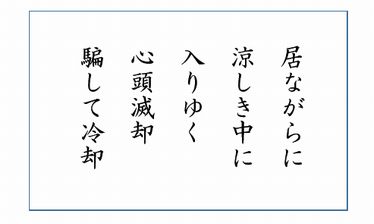 居ながらに
涼しき中に
入りゆく
心頭滅却
騙して冷却